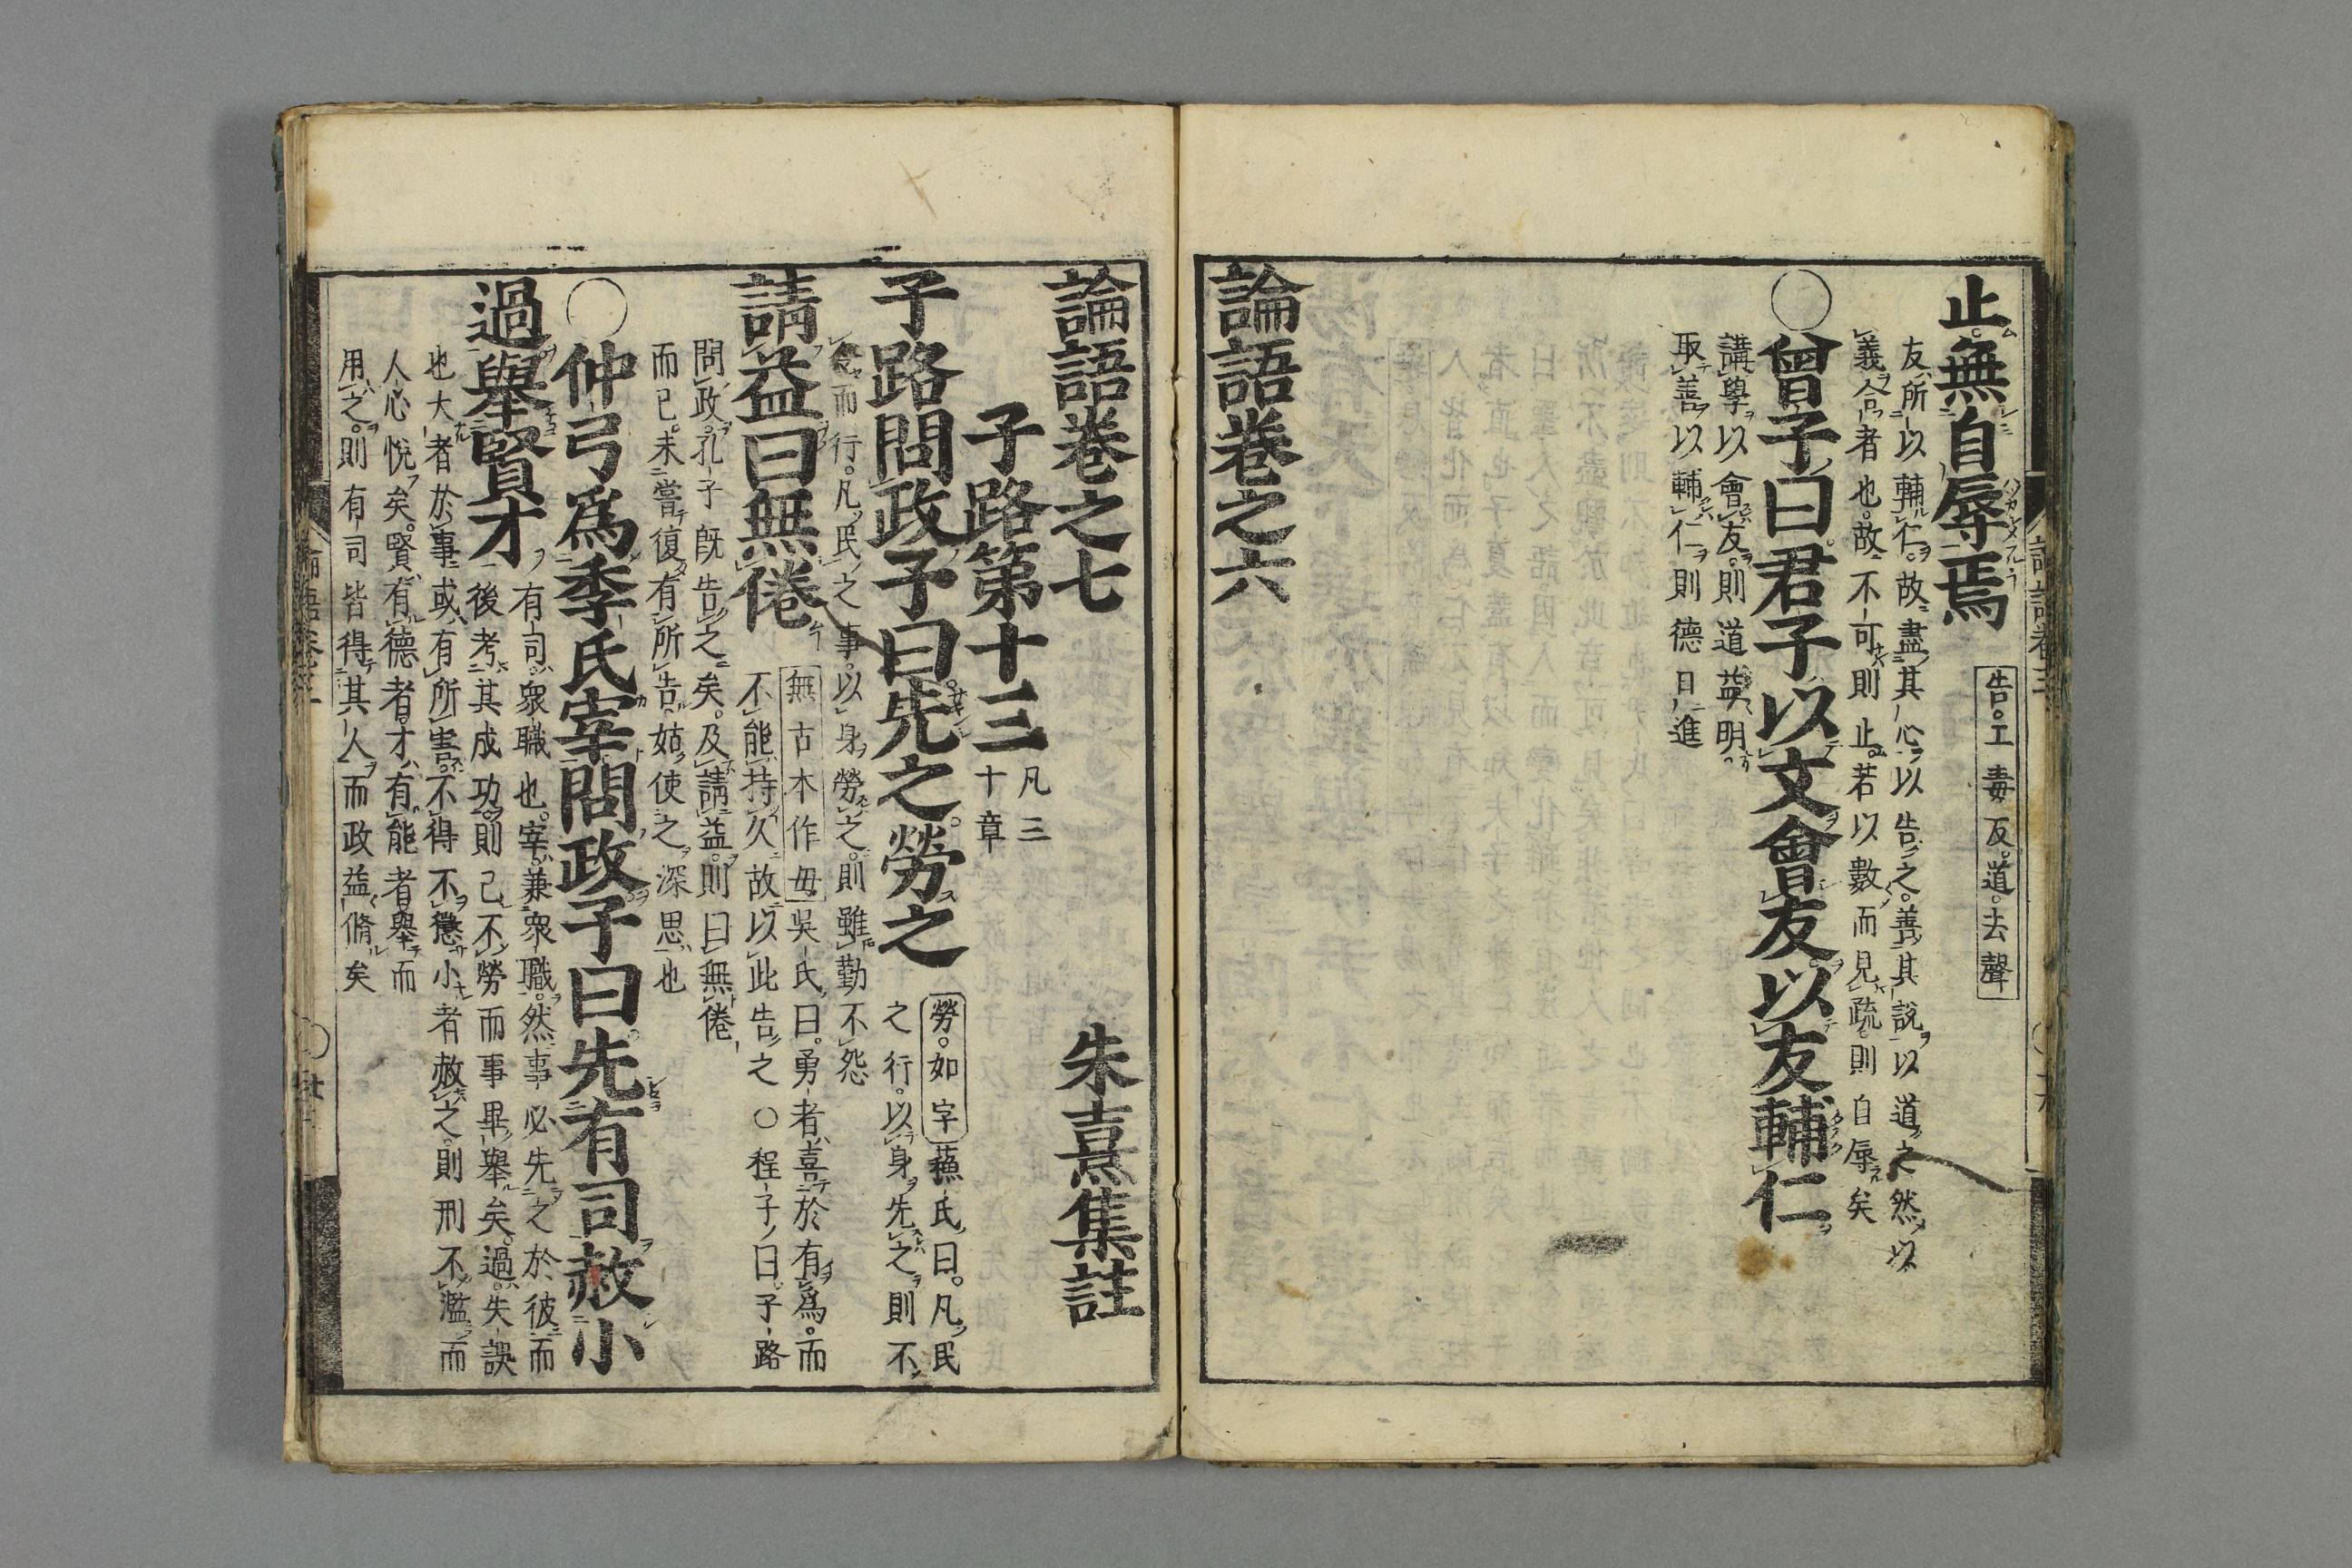 止無自辱焉
告工毒反道去聲
友所以輔仁故盡其心以告之善其説以道之然以
義合者也故不可則止若以數而見疏則自辱矣
○曾子曰君子以文會友以友輔仁
講學以會友則道益明
取善以輔仁則德日進
論語卷之六
論語卷之七
朱熹集註
子路第十三
凡三
十章
子路問政子曰先之勞之
勞如字蘇氏曰凡民
之行以身先之則不
令而行凡民之事以身勞之則雖勤不怨
請益曰無倦
無古本作毋吳氏曰勇者喜於有爲而
不能持久故以此告之○程子曰子路
問政孔子既告之矣及請益則曰無倦
而已未嘗復有所告姑使之深思也
○仲弓爲季氏宰問政子曰先有司赦小
過舉賢才
有司衆職也宰兼衆職然事必先之於彼而
後考其成功則己不勞而事畢舉矣過失誤
也大者於事或有所害不得不懲小者赦之則刑不濫而
人心悅矣賢有德者才有能者舉而
用之則有司皆得其人而政益脩矣